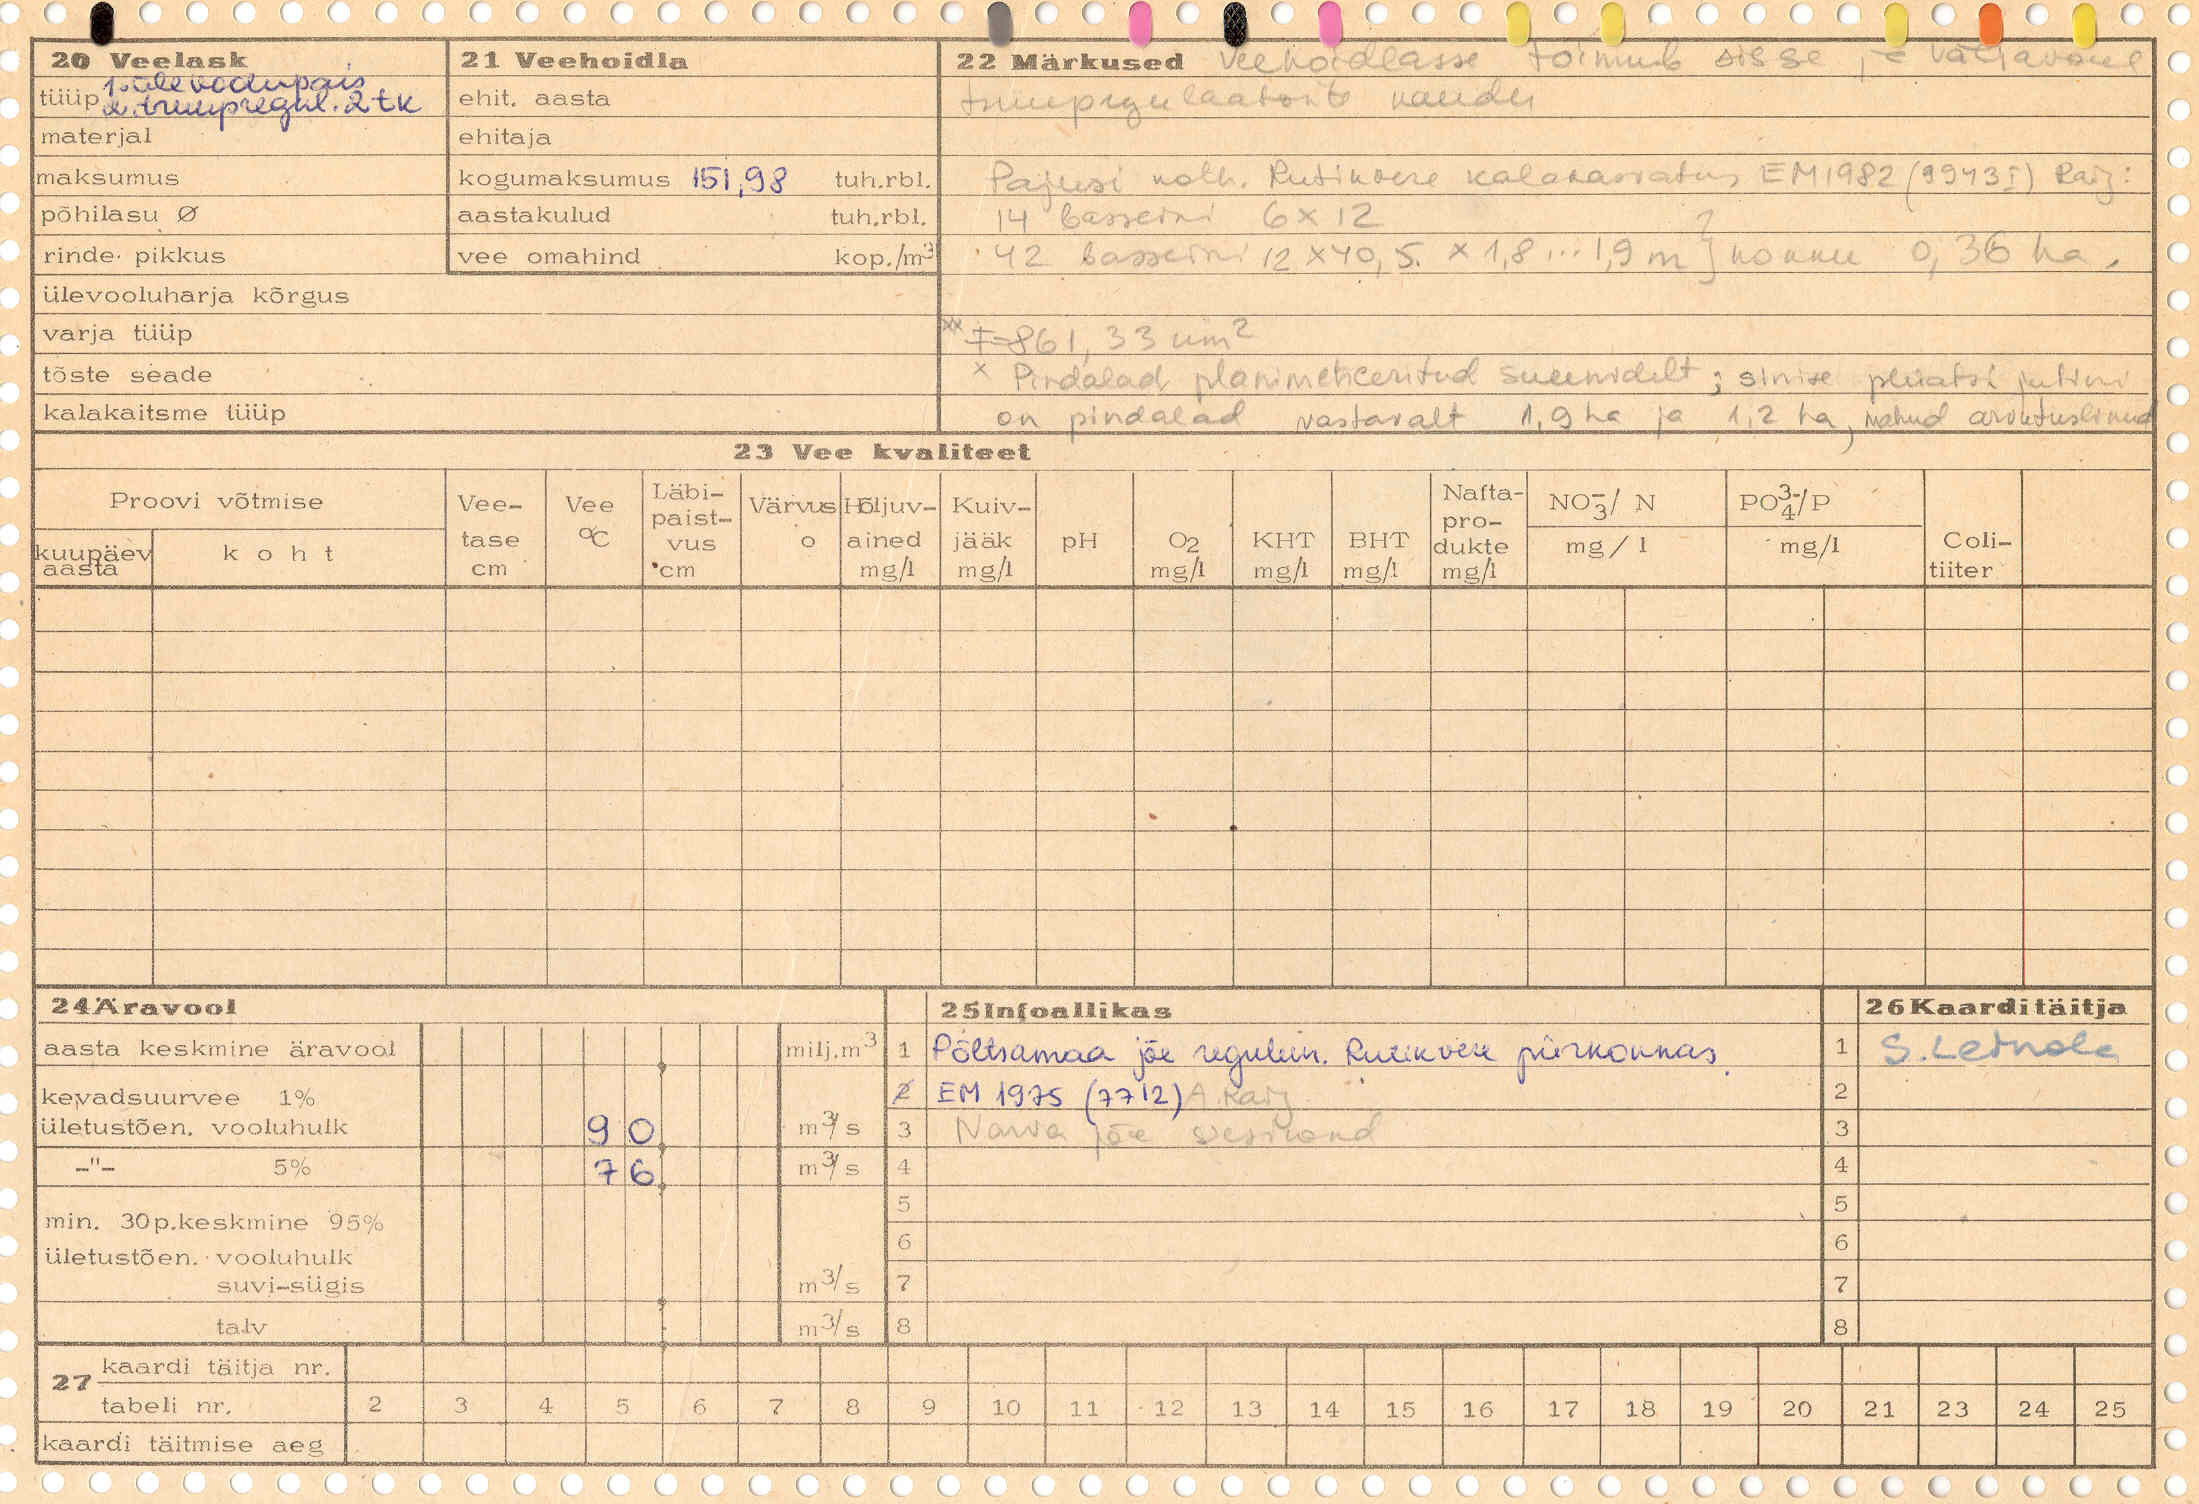 20 Veelask
tüüp 1. ülevoolupais
2. truupregul. 2 tk
materjal
maksumus
põhilasu Ø
rinde pikkus
ülevooluharja kõrgus
varja tüüp
tõste seade
kalakaitsme tüüp
21 Veehoidla
ehit. aasta
ehitaja
kogumaksumus 151,98 tuh.rbl.
aastakulud tuh.rbl.
vee omahind kop./m³
22 Märkused Veehoidlasse toimub sisse- ja väljavool
truupregulaatorite kaudu
Pajusi kolh. Rutikvere kalakasvatus EM 1982 (9943 I) Raig:
14 basseini 6 x 12
42 basseini 12 x 40,5 x 1,8 ... 1,9 m } kokku 0,36 ha.
xx F=861,33 km²
x Pindalad planimetreeritud skeemidelt; sinise pliiatsi
on pindalad vastavalt 1,9 ha ja 1,2 ha, mahud arvutuslikud
23 Vee kvaliteet
Proovi võtmise
kuupäev aasta
koht
Vee-tase cm
Vee °C
Läbi-paist-vus cm
Värvus o
Hõljuv-ained mg/l
Kuiv-jääk mg/l
pH
O2 mg/l
KHT mg/l
BHT mg/l
Nafta-pro-dukte mg/l
NO3-/ N mg/l
PO4 3-/P mg/l
Coli-tiiter
24 Äravool
aasta keskmine äravool milj.m³
kevadsuurvee 1%
ületustõen. vooluhulk 90 m³/s
-"- 5% 76 m³/s
min. 30p.keskmine 95%
ületustõen. vooluhulk
suvi-sügis m³/s
talv m³/s
25 Infoallikas
1 Põltsamaa jõe regulein. Rutikvere piirkonnas.
2 EM 1975 (7712) A. Raig
3 Narva jõe vesikond
4
5
6
7
8
26 Kaarditäitja
1 S. Leinola
2
3
4
5
6
7
8
27 kaardi täitja nr.
tabeli nr. 2 3 4 5 6 7 8 9 10 11 12 13 14 15 16 17 18 19 20 21 23 24 25
kaardi täitmise aeg